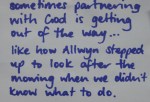 sometimes partnering
with God is getting
out of the way...
like how Allwyn stepped
up to look after the
mowing when we didn't
know what to do.